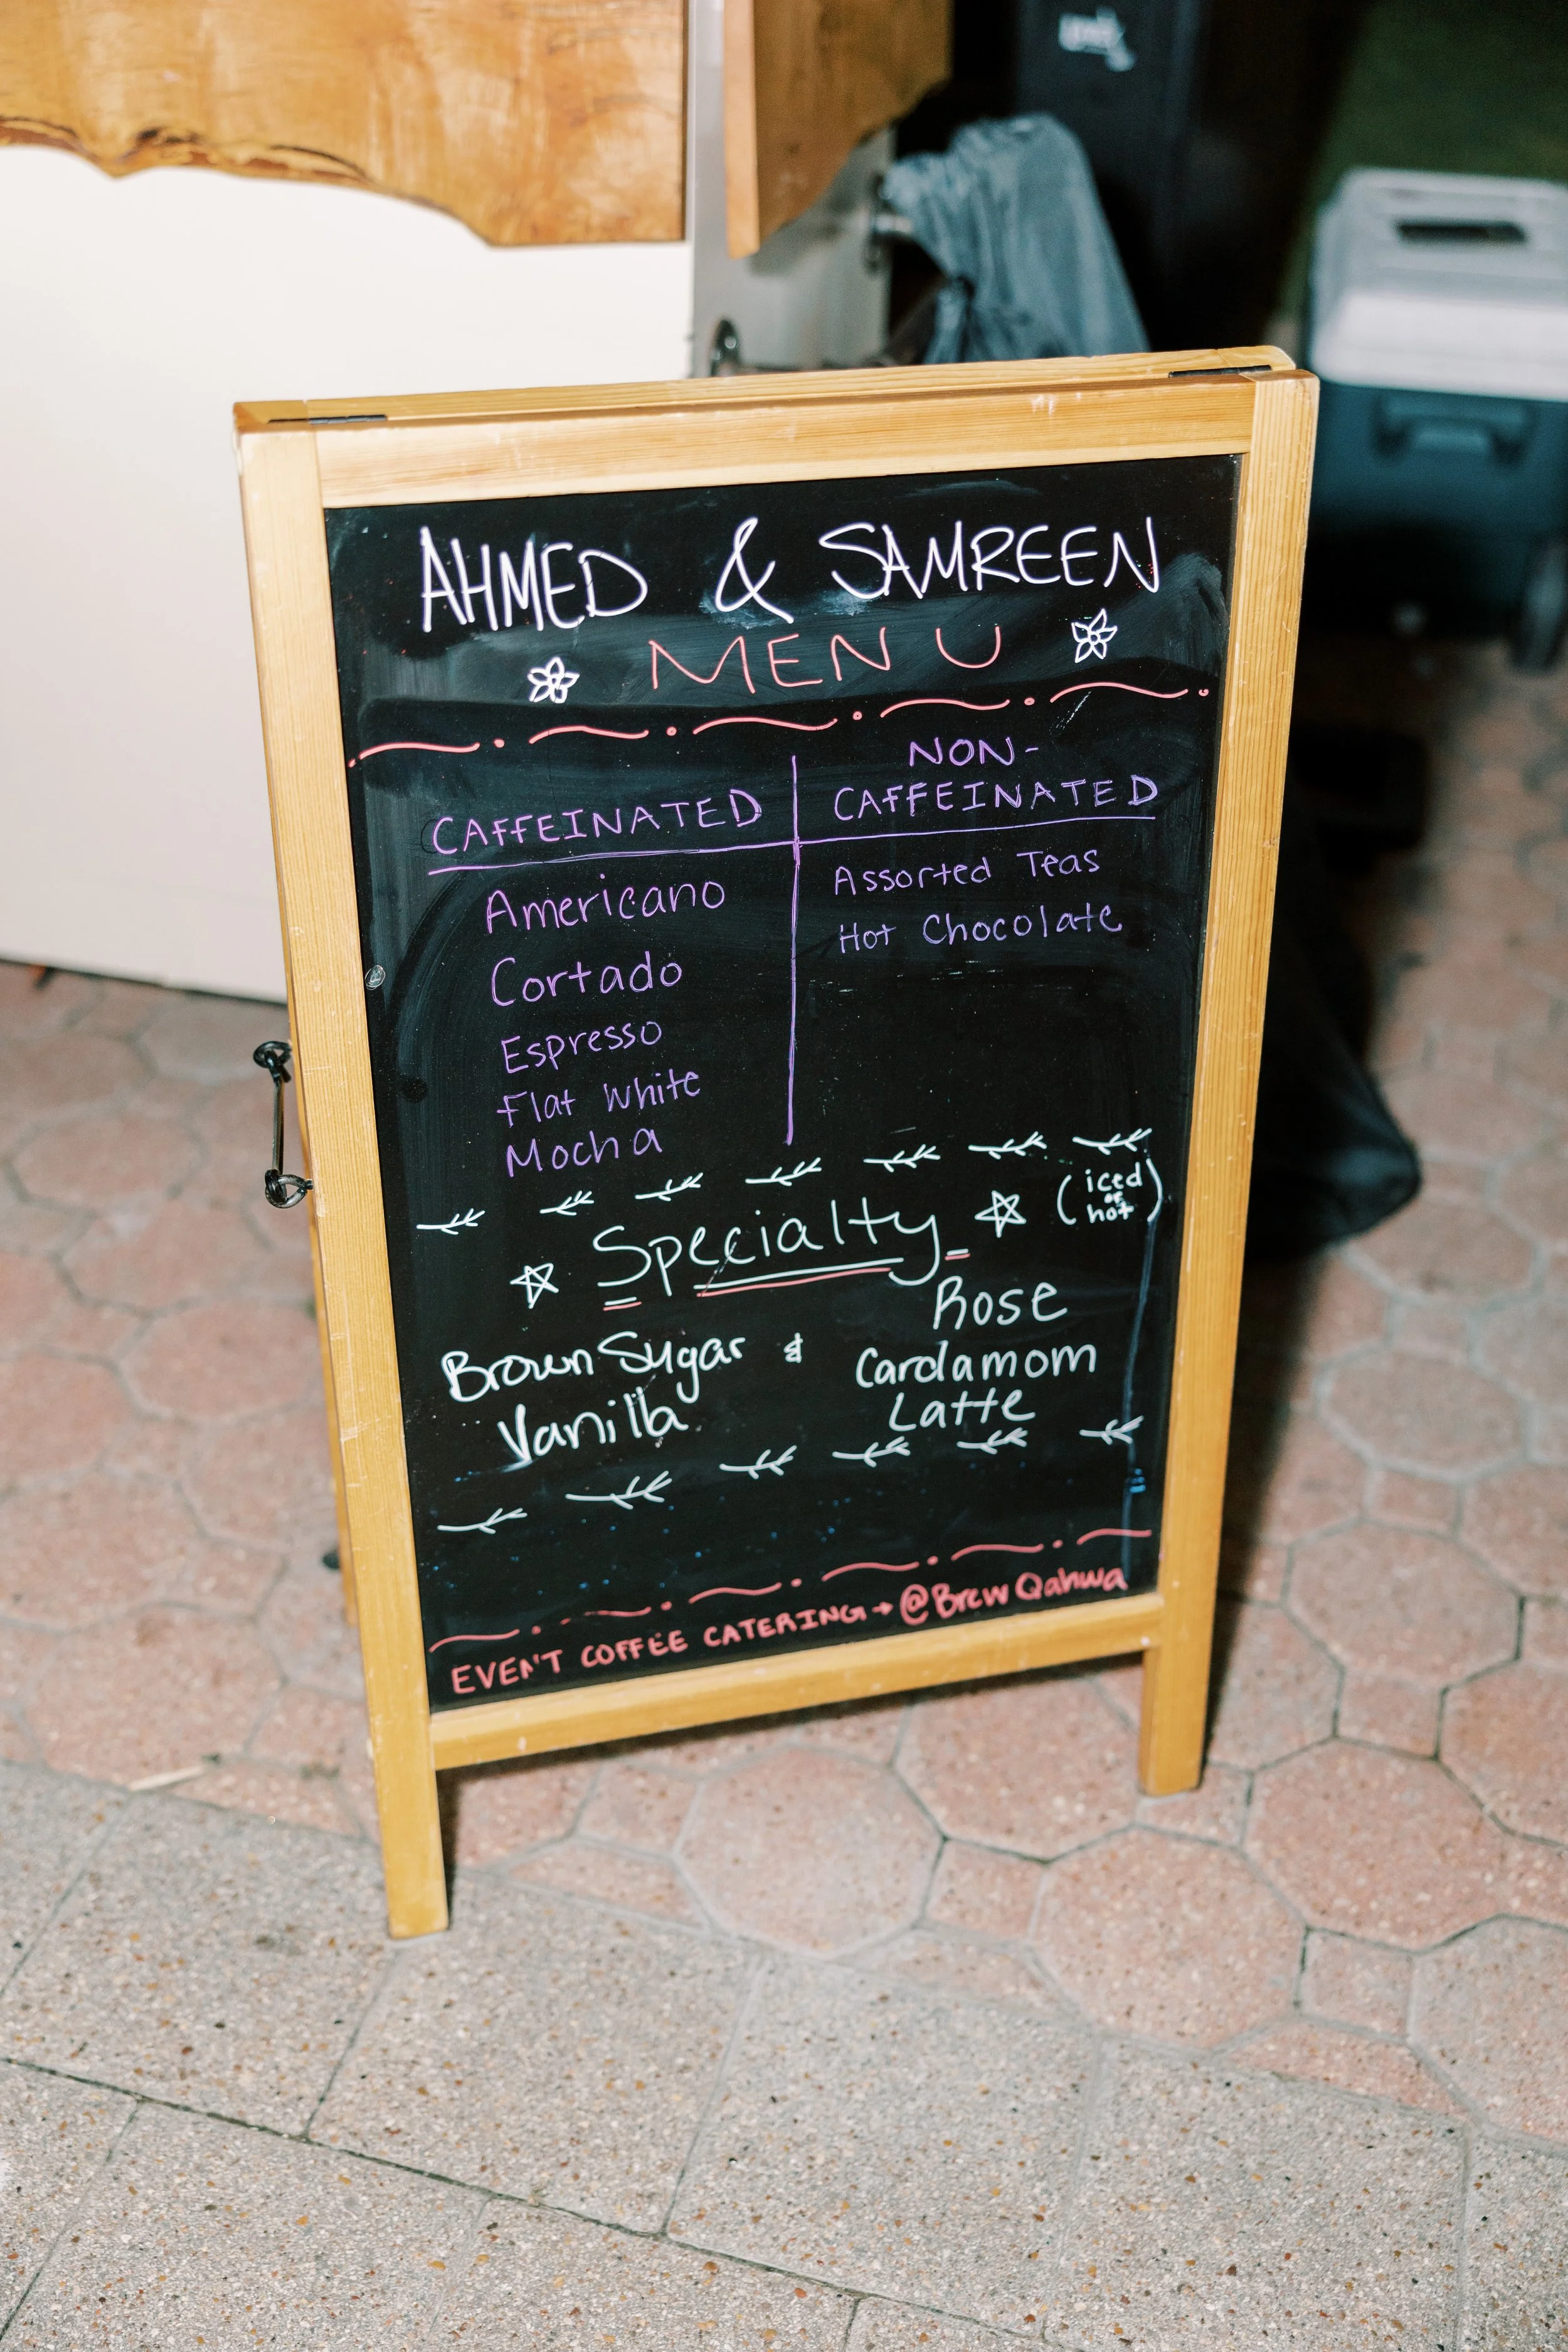 AHMED & SAMREEN
MENU
CAFFEINATED
Americano
Cortado
Espresso
Flat White
Mocha
NON-
CAFFEINATED
Assorted Teas
Hot Chocolate
Specialty
(iced
or
hot)
Brown Sugar &
Vanilla
Rose
Cardamom
Latte
EVENT COFFEE CATERING → @BrewQahwa